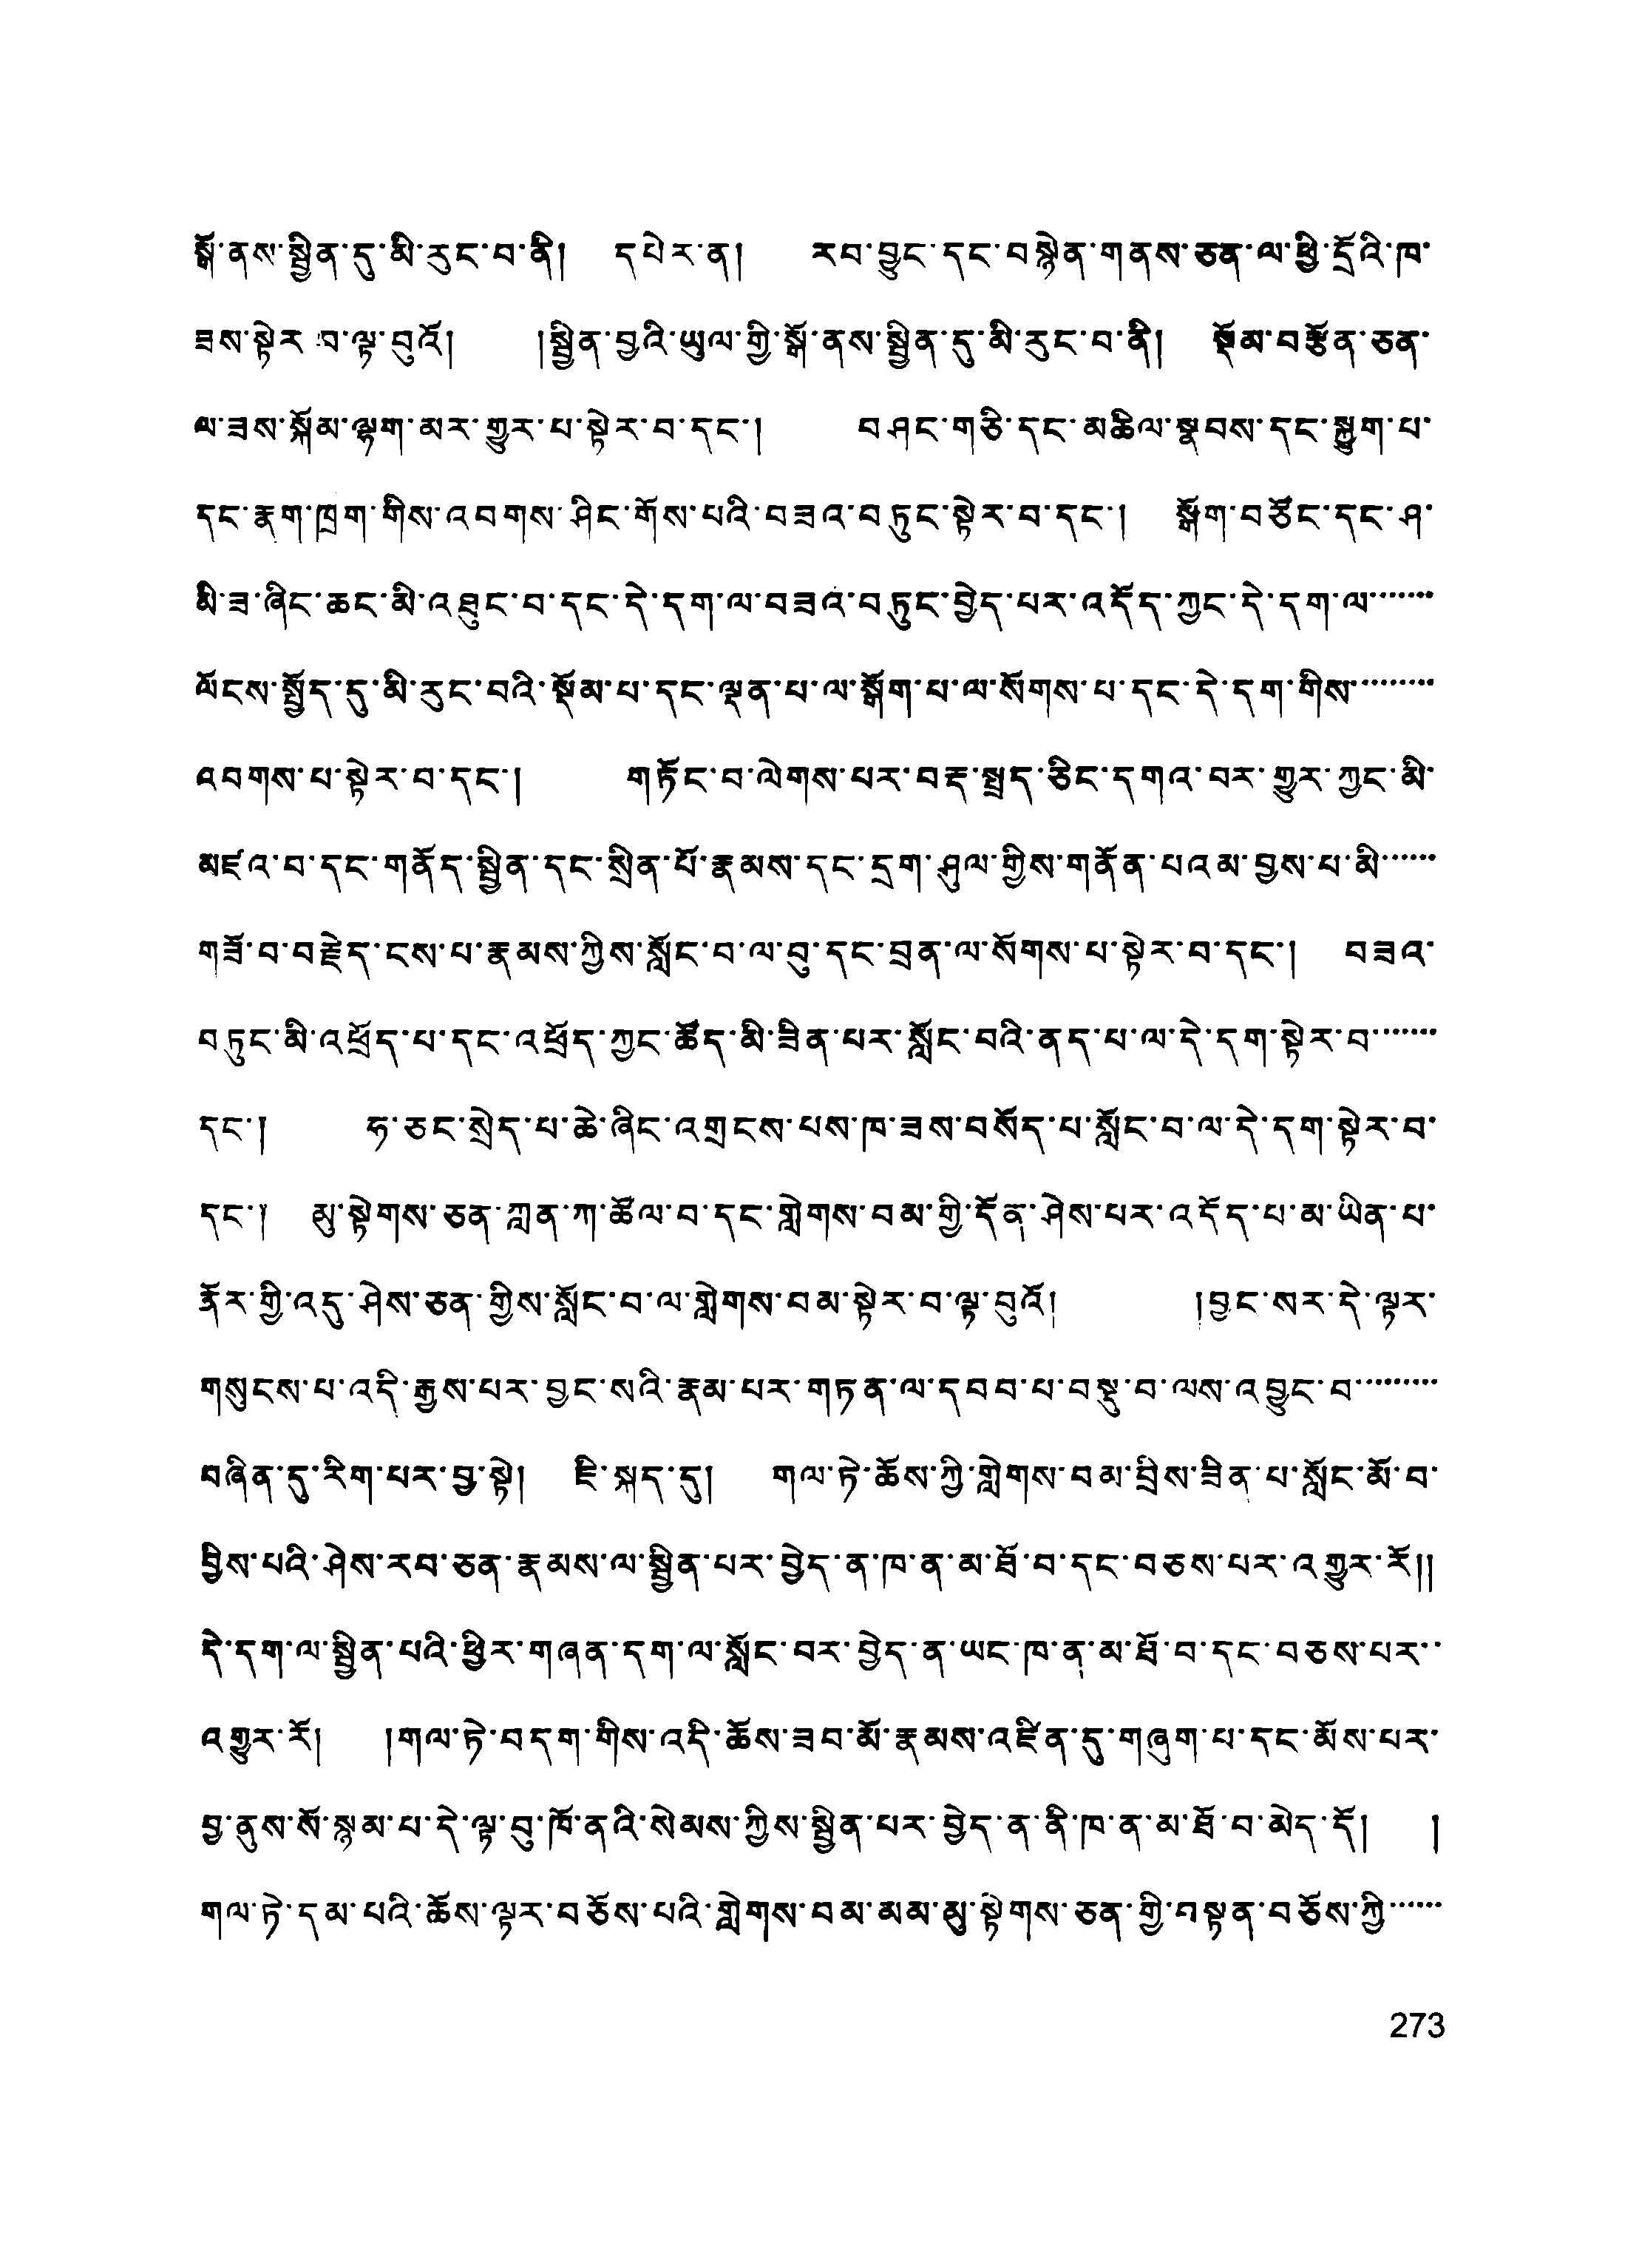 སྒོ་ནས་སྦྱིན་དུ་མི་རུང་བ་ནི། དཔེར་ན། རབ་བྱུང་དང་བསྙེན་གནས་ཅན་ལ་ཕྱི་དྲོའི་ཁ་
ཟས་སྟེར་བ་ལྟ་བུའོ། །སྦྱིན་བྱའི་ཡུལ་གྱི་སྒོ་ནས་སྦྱིན་དུ་མི་རུང་བ་ནི། སྡོམ་བརྩོན་ཅན་
ལ་ཟས་སྐོམ་ལྷག་མར་གྱུར་པ་སྟེར་བ་དང་། བཤང་གཅི་དང་མཆིལ་སྣབས་དང་སྐྱུག་པ་
དང་རྣག་ཁྲག་གིས་འབགས་ཤིང་གོས་པའི་བཟའ་བཏུང་སྟེར་བ་དང་། སྒོག་བཙོང་དང་ཤ་
མི་ཟ་ཞིང་ཆང་མི་འཐུང་བ་དང་དེ་དག་ལ་བཟའ་བཏུང་བྱེད་པར་འདོད་ཀྱང་དེ་དག་ལ་······
ལོངས་སྤྱོད་དུ་མི་རུང་བའི་སྡོམ་པ་དང་ལྡན་པ་ལ་སྒོག་པ་ལ་སོགས་པ་དང་དེ་དག་གིས་·······
འབགས་པ་སྟེར་བ་དང་། གཏོང་བ་ལེགས་པར་བརྡ་སྤྲད་ཅིང་དགའ་བར་གྱུར་ཀྱང་མི་
མཛའ་བ་དང་གནོད་སྦྱིན་དང་སྲིན་པོ་རྣམས་དང་དྲག་ཤུལ་གྱིས་གནོན་པའམ་བྱས་པ་མི་·····
གཟོ་བ་བརྗེད་ངས་པ་རྣམས་ཀྱིས་སློང་བ་ལ་བུ་དང་བྲན་ལ་སོགས་པ་སྟེར་བ་དང་། བཟའ་
བཏུང་མི་འཕྲོད་པ་དང་འཕྲོད་ཀྱང་ཚོད་མི་ཟིན་པར་སློང་བའི་ནད་པ་ལ་དེ་དག་སྟེར་བ་······
དང་། ཧ་ཅང་སྲེད་པ་ཆེ་ཞིང་འགྲངས་པས་ཁ་ཟས་བསོད་པ་སློང་བ་ལ་དེ་དག་སྟེར་བ་
དང་། མུ་སྟེགས་ཅན་ཀླན་ཀ་ཚོལ་བ་དང་གླེགས་བམ་གྱི་དོན་ཤེས་པར་འདོད་པ་མ་ཡིན་པ་
ནོར་གྱི་འདུ་ཤེས་ཅན་གྱིས་སློང་བ་ལ་གླེགས་བམ་སྟེར་བ་ལྟ་བུའོ། །བྱང་སར་དེ་ལྟར་
གསུངས་པ་འདི་རྒྱས་པར་བྱང་སའི་རྣམ་པར་གཏན་ལ་དབབ་པ་བསྡུ་བ་ལས་འབྱུང་བ་········
བཞིན་དུ་རིག་པར་བྱ་སྟེ། ཇི་སྐད་དུ། གལ་ཏེ་ཆོས་ཀྱི་གླེགས་བམ་བྲིས་ཟིན་པ་སློང་མོ་བ་
བྱིས་པའི་ཤེས་རབ་ཅན་རྣམས་ལ་སྦྱིན་པར་བྱེད་ན་ཁ་ན་མ་ཐོ་བ་དང་བཅས་པར་འགྱུར་རོ།།
དེ་དག་ལ་སྦྱིན་པའི་ཕྱིར་གཞན་དག་ལ་སློང་བར་བྱེད་ན་ཡང་ཁ་ན་མ་ཐོ་བ་དང་བཅས་པར་·
འགྱུར་རོ། །གལ་ཏེ་བདག་གིས་འདི་ཆོས་ཟབ་མོ་རྣམས་འཛིན་དུ་གཞུག་པ་དང་མོས་པར་
བྱ་ནུས་སོ་སྙམ་པ་དེ་ལྟ་བུ་ཁོ་ནའི་སེམས་ཀྱིས་སྦྱིན་པར་བྱེད་ན་ནི་ཁ་ན་མ་ཐོ་བ་མེད་དོ། །
གལ་ཏེ་དམ་པའི་ཆོས་ལྟར་བཅོས་པའི་གླེགས་བམ་མམ་མུ་སྟེགས་ཅན་གྱི་བསྟན་བཅོས་ཀྱི་·····
273